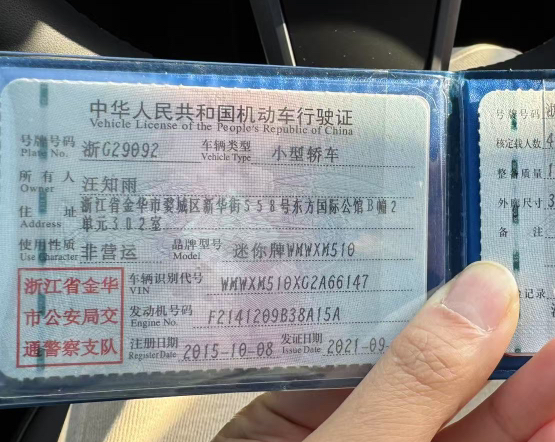 中华人民共和国机动车行驶证
Vehicle License of the People's Republic of China
号牌号码 浙G29092 车辆类型 小型轿车
Plate No. Vehicle Type
所有人 汪知雨
Owner
住址 浙江省金华市婺城区新华街558号东方国际公馆B幢2
Address 单元302室
使用性质 非营运 品牌型号 迷你牌WMWXM510
Use Character Model
浙江省金华
市公安局交
通警察支队
车辆识别代号 WMWXM510XG2A66147
VIN
发动机号码 F2141209B38A15A
Engine No.
注册日期 2015-10-08 发证日期 2021-09-
Register Date Issue Date
号牌号码 浙
核定载人数
整备质量
外廓尺寸
备注